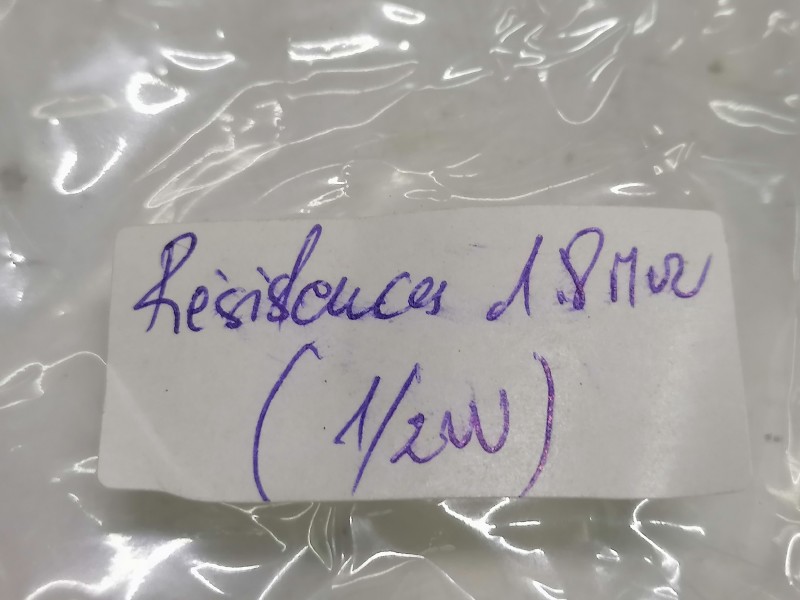 Résistances 1.8 MΩ
(1/2W)